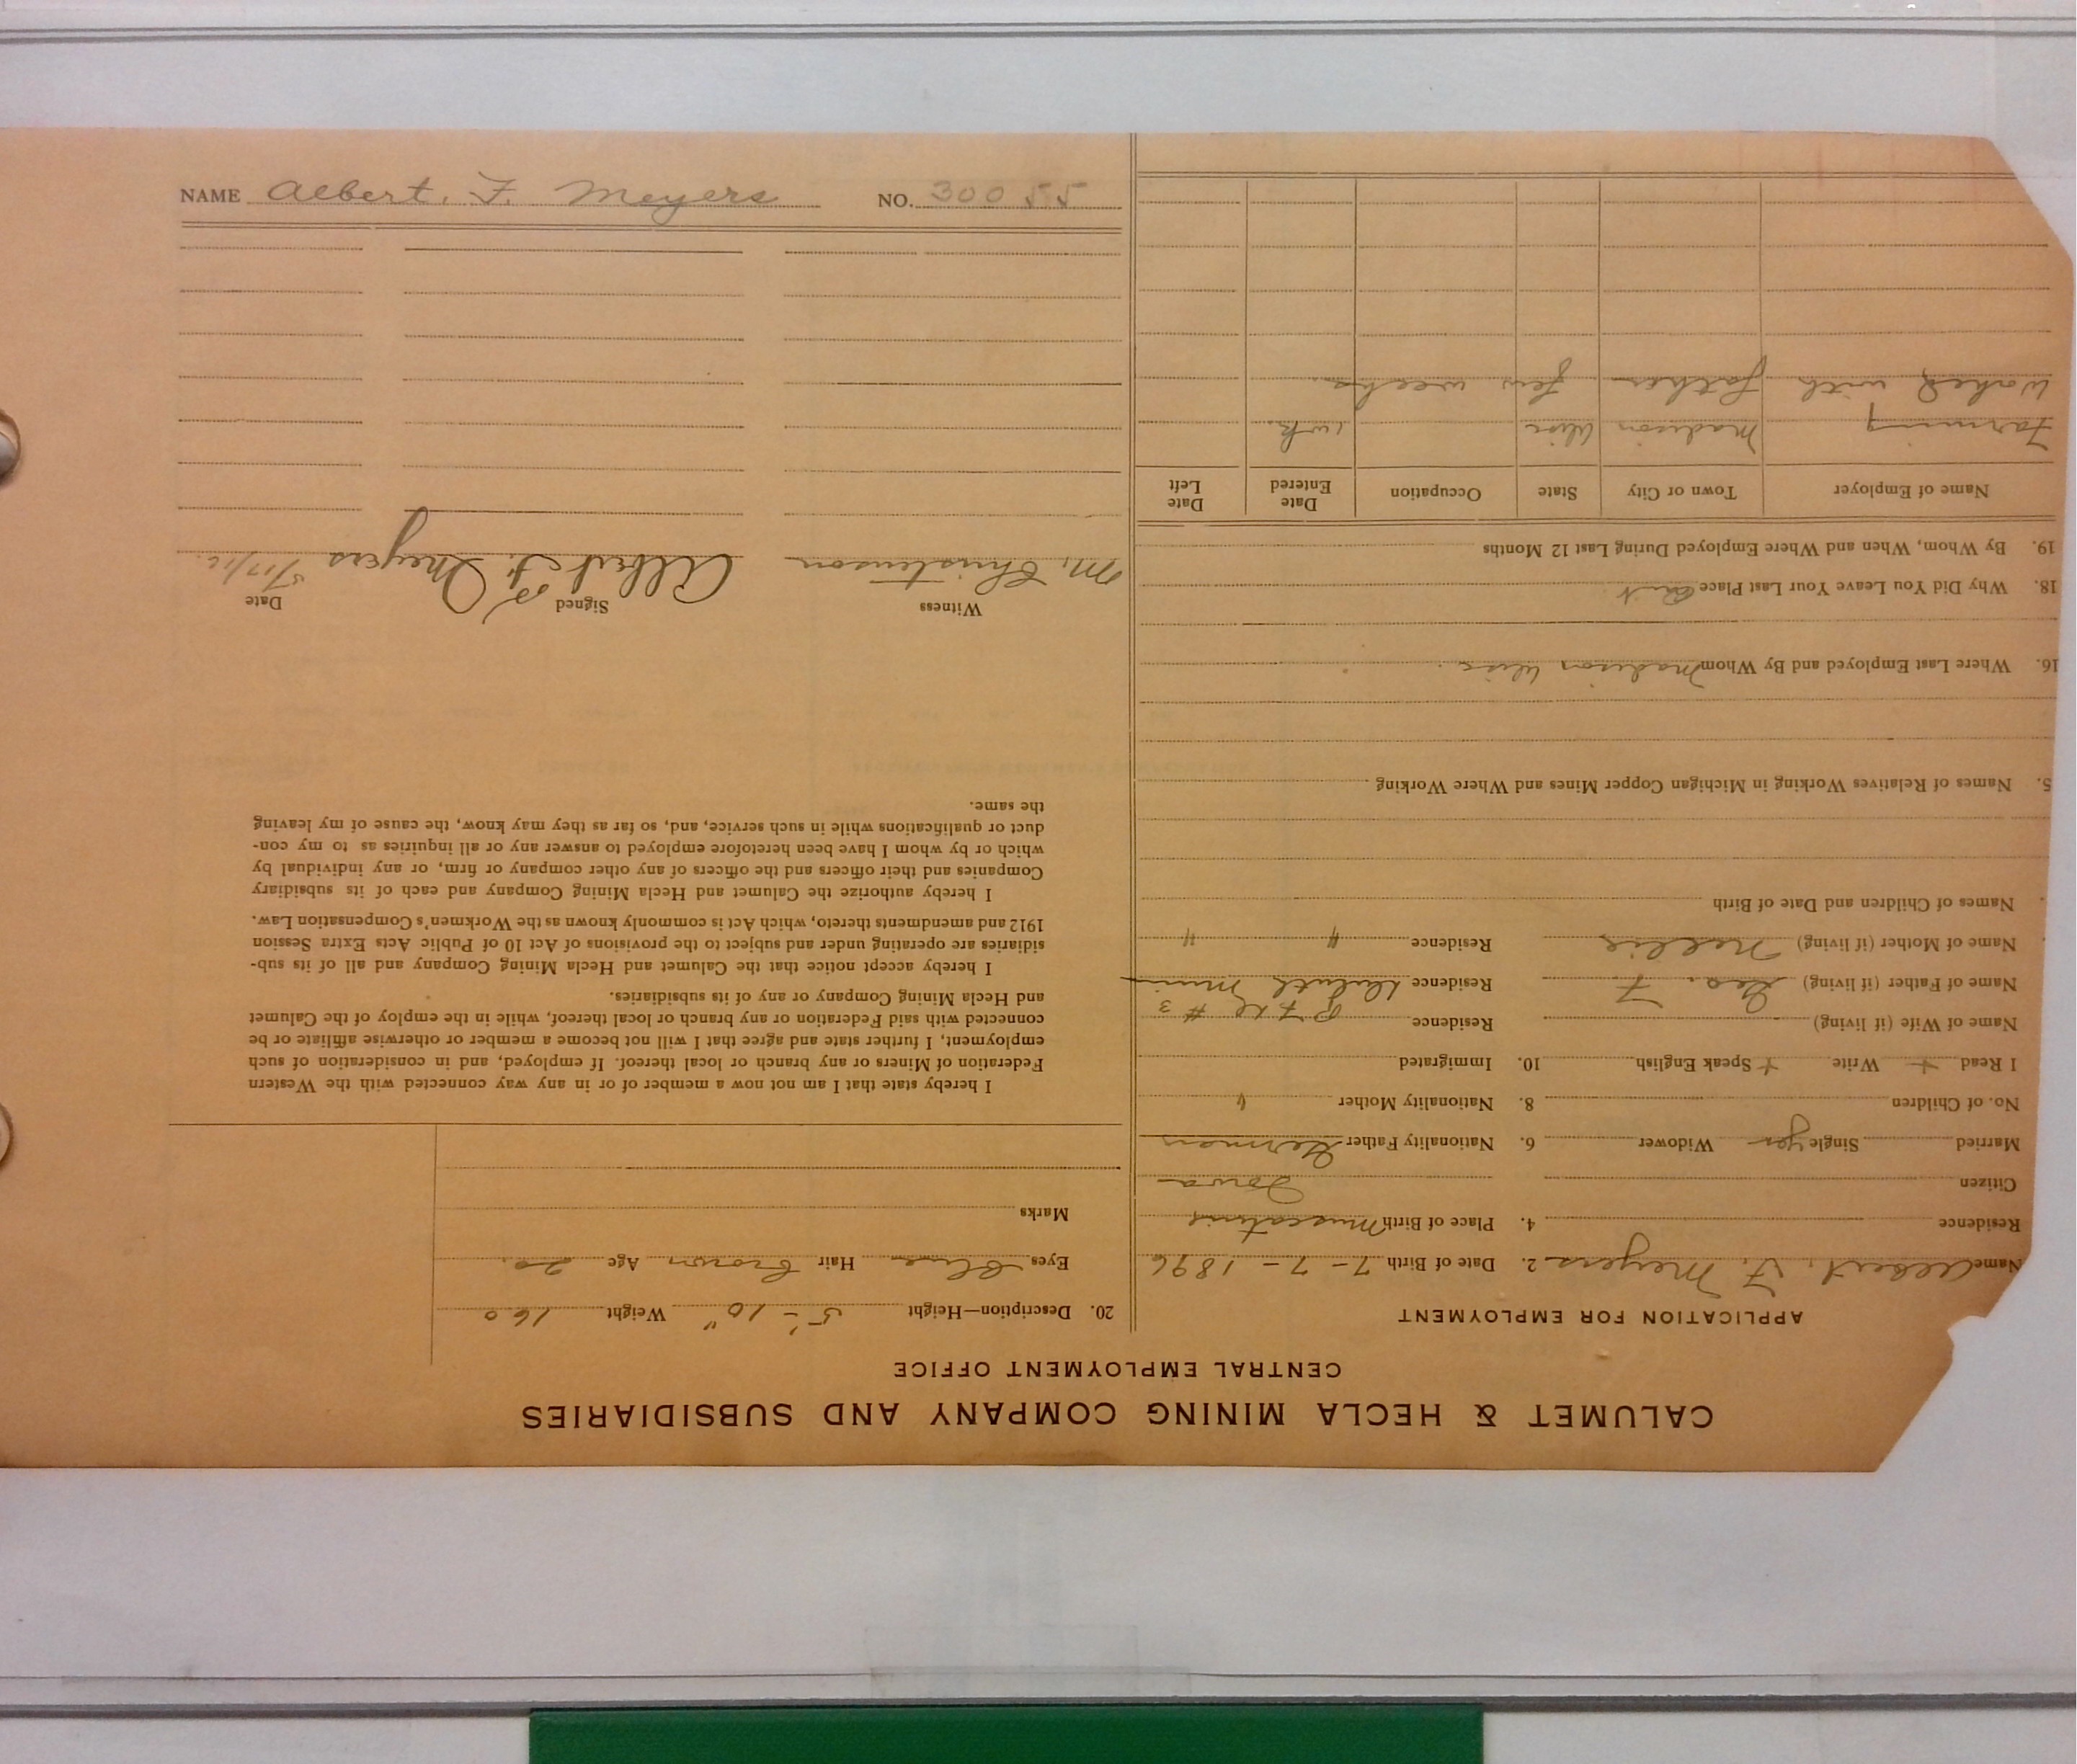 NAME Albert. F. Meyers NO. 30055
CALUMET & HECLA MINING COMPANY AND SUBSIDIARIES
CENTRAL EMPLOYMENT OFFICE
APPLICATION FOR EMPLOYMENT
Name Albert. F. Meyers 2. Date of Birth 7-7-1896
Residence 4. Place of Birth Muscatine
Citizen Iowa
Married Single yes Widower 6. Nationality Father German
No. of Children 8. Nationality Mother "
I Read + Write + Speak English 10. Immigrated
Name of Wife (if living) Residence #3
Name of Father (if living) Geo. F Residence Duluth Minn
Name of Mother (if living) Nellie Residence " "
Names of Children and Date of Birth
5. Names of Relatives Working in Michigan Copper Mines and Where Working
16. Where Last Employed and By Whom Madison Wisc
18. Why Did You Leave Your Last Place
19. By Whom, When and Where Employed During Last 12 Months
Name of Employer Town or City State Occupation Date Entered Date Left
Farming Madison Wisc 1 wk.
Worked with father few weeks.
20. Description—Height 5'-10" Weight 160
Eyes Blue Hair Brown Age 20.
Marks
I hereby state that I am not now a member of or in any way connected with the Western
Federation of Miners or any branch or local thereof. If employed, and in consideration of such
employment, I further state and agree that I will not become a member or otherwise affiliate or be
connected with said Federation or any branch or local thereof, while in the employ of the Calumet
and Hecla Mining Company or any of its subsidiaries.
I hereby accept notice that the Calumet and Hecla Mining Company and all of its sub-
sidiaries are operating under and subject to the provisions of Act 10 of Public Acts Extra Session
1912 and amendments thereto, which Act is commonly known as the Workmen's Compensation Law.
I hereby authorize the Calumet and Hecla Mining Company and each of its subsidiary
Companies and their officers and the officers of any other company or firm, or any individual by
which or by whom I have been heretofore employed to answer any or all inquiries as to my con-
duct or qualifications while in such service, and, so far as they may know, the cause of my leaving
the same.
Witness Signed Date
M. Christenson Albert F. Meyers 5/17/16.